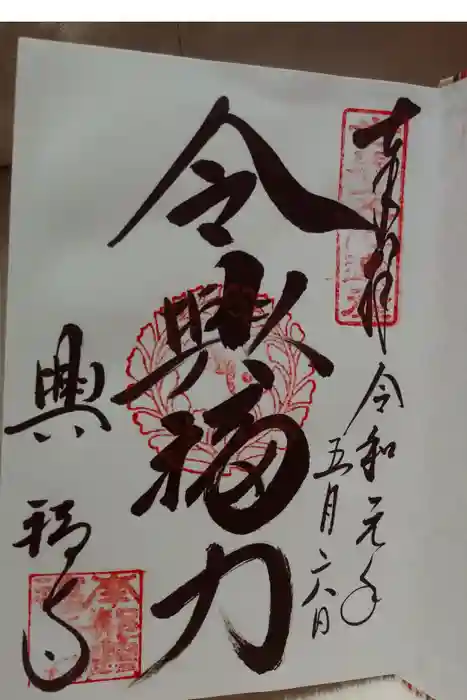 奉拝
令和元年
五月六日
令興福力
興福寺